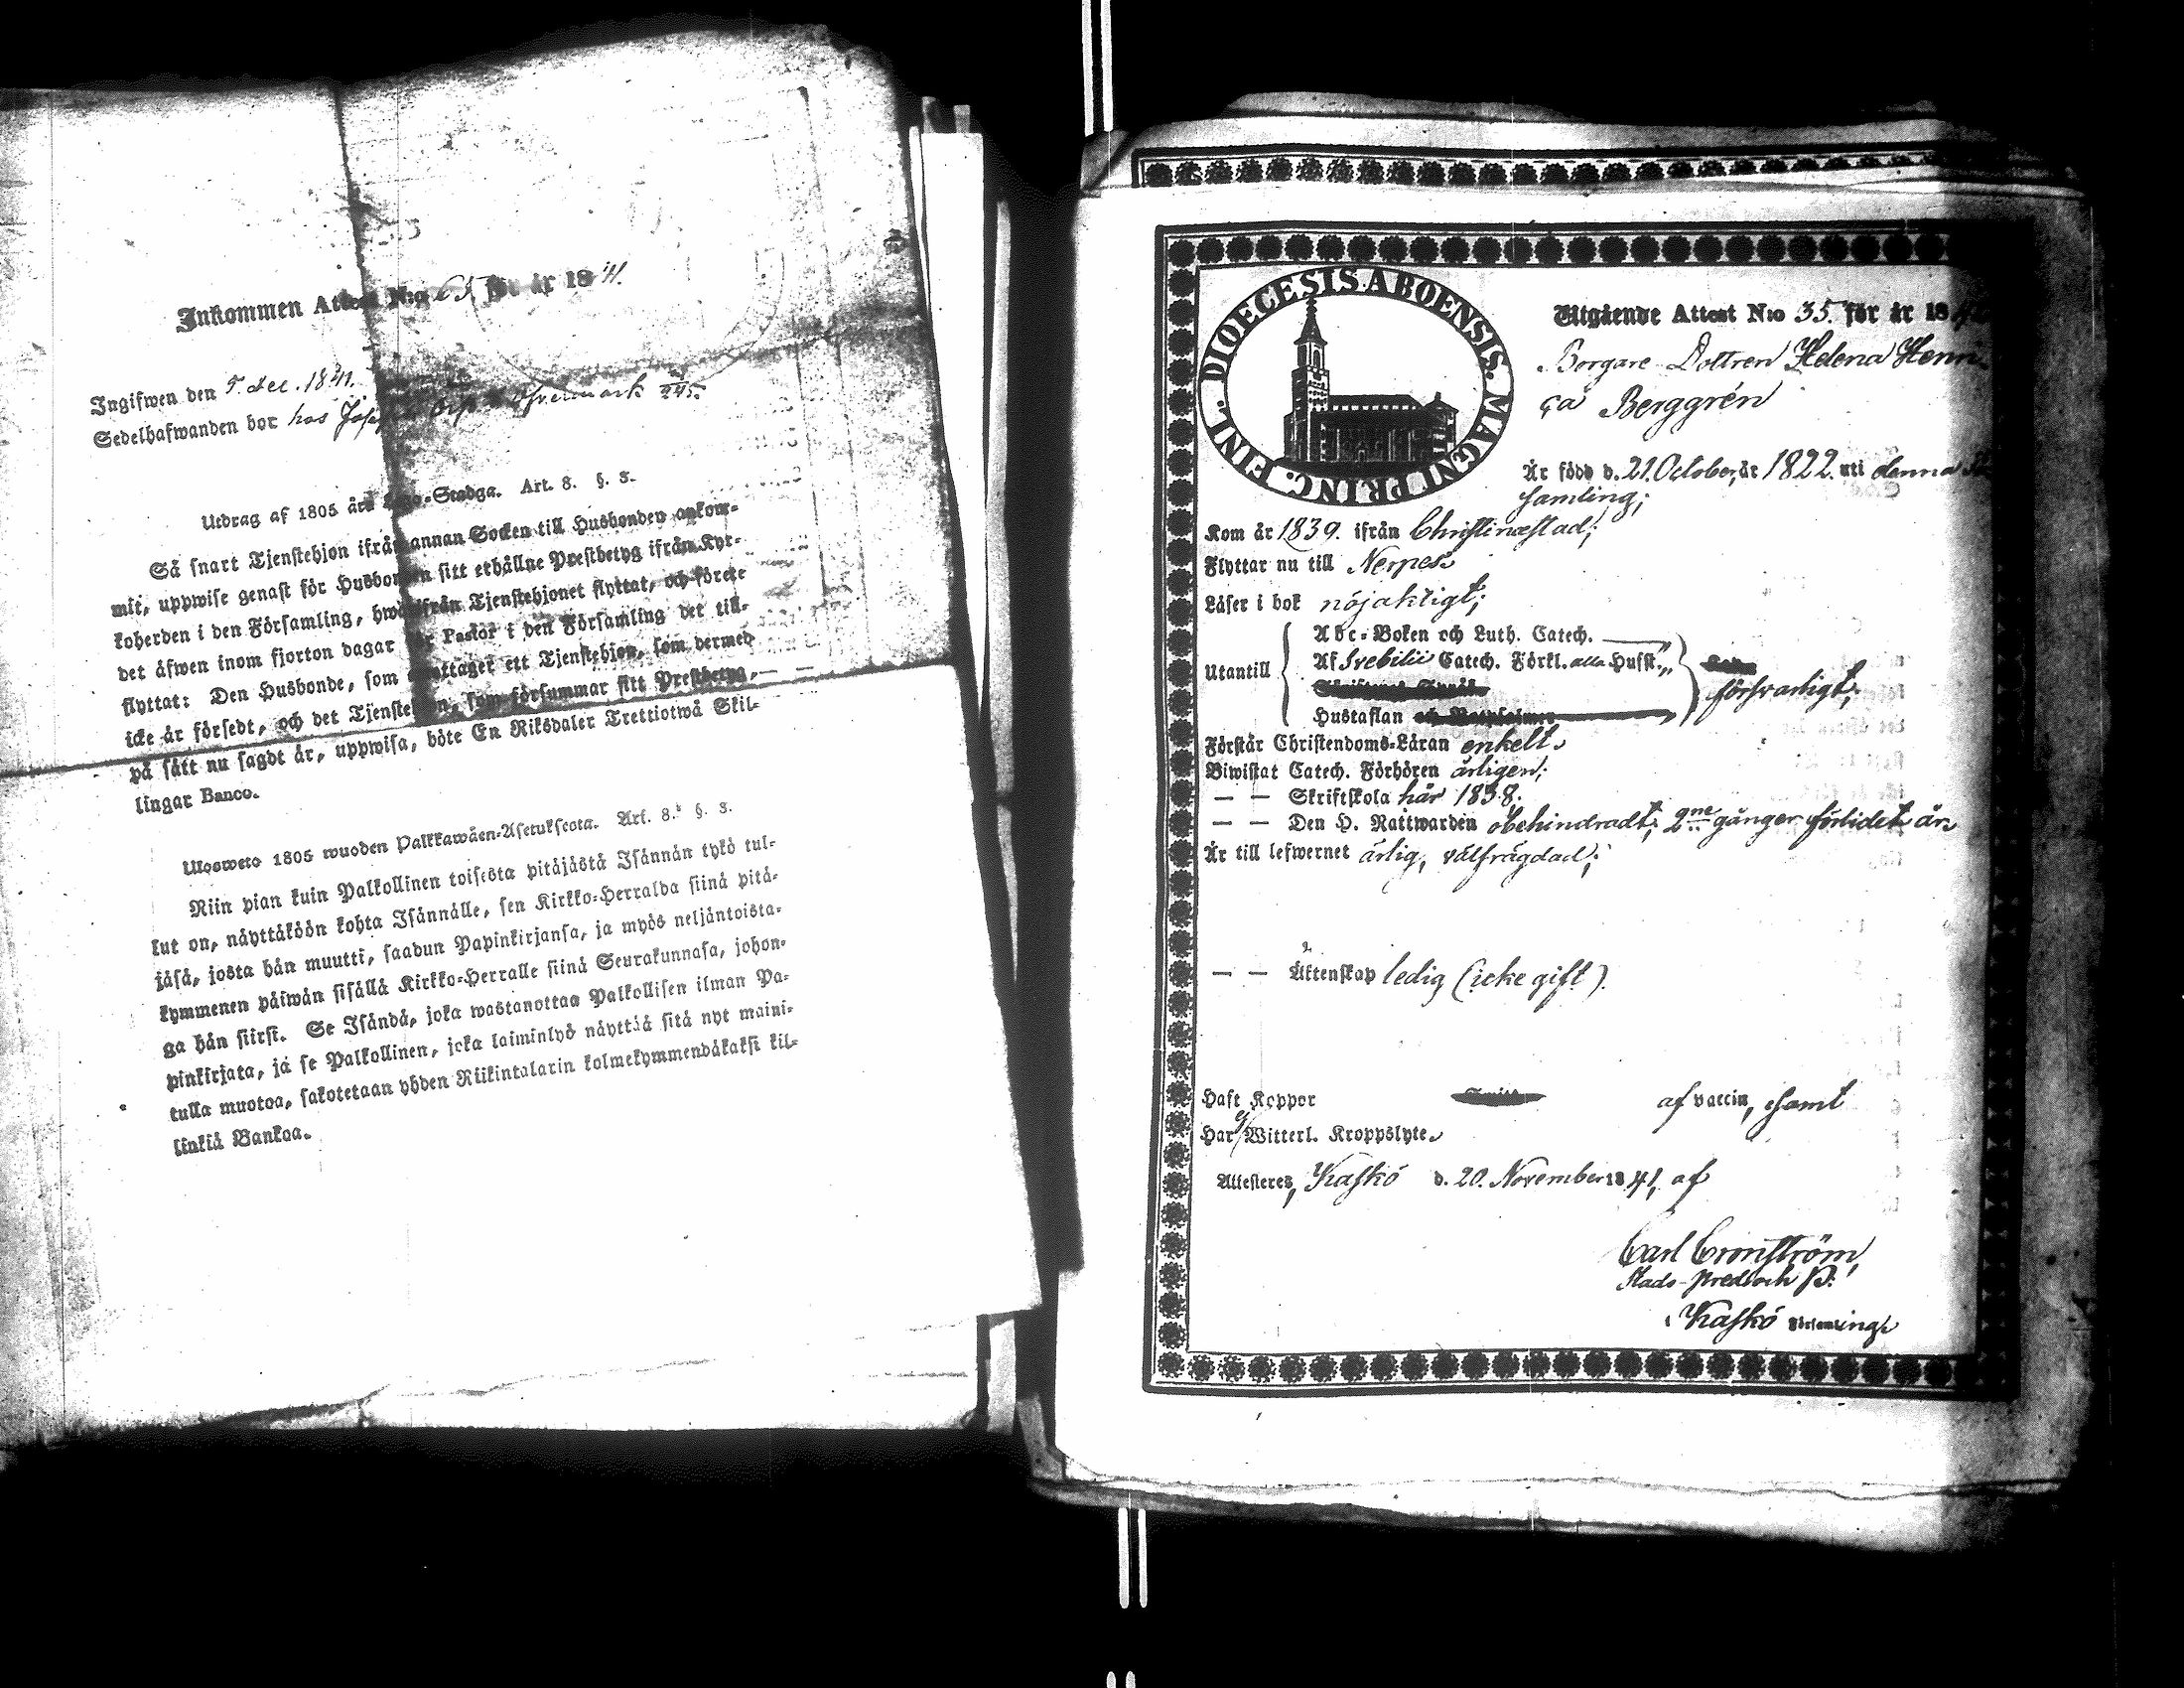 Inkommen Attest N:o 65 för år 1841.
Ingifwen den 5 dec. 1841.
Sedelhafwanden bor hos
Utdrag af 1805 års Lego-Stadga. Art. 8. §. 3.
Så snart Tjenstehjon ifrån annan Socken till Husbonden ankom-
mit, uppwise genast för Husbonden sitt erhållne Prestbetyg ifrån Kyr-
koherden i den Församling, hwarifrån Tjenstehjonet flyttat, och förete
det äfwen inom fjorton dagar för Pastor i den Församling det till-
flyttat: Den Husbonde, som emottager ett Tjenstehjon, som dermed
icke är försedt, och det Tjenstehjon, som försummar sitt Prestbetyg, — —
på sätt nu sagdt är, uppwisa, böte En Riksdaler Trettiotwå Skil-
lingar Banco.
Uloswето 1805 wuoden Palkkawäen-Asetuksesta. Art. 8. §. 3.
Niin pian kuin Palkollinen toisesta pitäjästä Isännän tykö tul-
lut on, näyttäköön kohta Isännälle, sen Kirkko-Herralda siinä pitä-
jäsä, josta hän muutti, saadun Papinkirjansa, ja myös neljäntoista-
kymmenen päiwän sisällä Kirkko-Herralle siinä Seurakunnasa, johon-
ga hän siirsi. Se Isändä, joka wastanottaa Palkollisen ilman Pa-
pinkirjata, ja se Palkollinen, joka laiminlyö näyttää sitä nyt maini-
tulla muotoa, sakotetaan yhden Riikintalarin kolmekymmendäkaksi kil-
linkiä Bankoa.
DIOECESIS ABOENSIS. MAGNI PRINC. FINL.
Utgående Attest N:o 35. för år 18
Borgare Dottren Helena Henri-
ca Berggrén
Är född d. 21. October, år 1822. uti denna
samling;
Kom år 1839. ifrån Christinæstad;
Flyttar nu till Nerpes
Läser i bok nöjaktigt;
Utantill
Abc-Boken och Luth. Catech.
Af Svebilii Catech. Förkl. alla Husst.
Hustaflan
försvarligt;
Förstår Christendoms-Läran enkelt.
Biwistat Catech. Förhören årligen;
— — Skriftskola här 1838.
— — Den H. Nattwarden obehindradt; 2ne gånger förlidet år.
Är till lefwernet ärlig, välfrägdad;
— — Äktenskap ledig (icke gift).
Haft Koppor af vaccin, samt
Har ej Witterl. Kroppslyte.
Attesteres, Kaskö d. 20. November 1841, af
Carl Cronström,
Kaskö Församling.